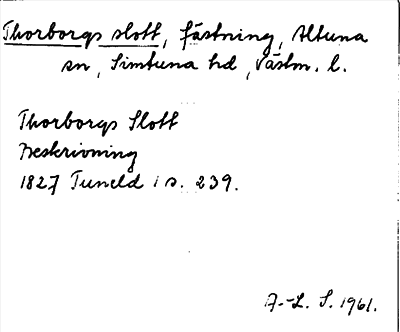 Thorborgs slott, fästning, Altuna
sn, Simtuna hd, Västm. l.
Thorborgs Slott
Beskrivning
1827 Tuneld i s. 239.
A.-L. S. 1961.